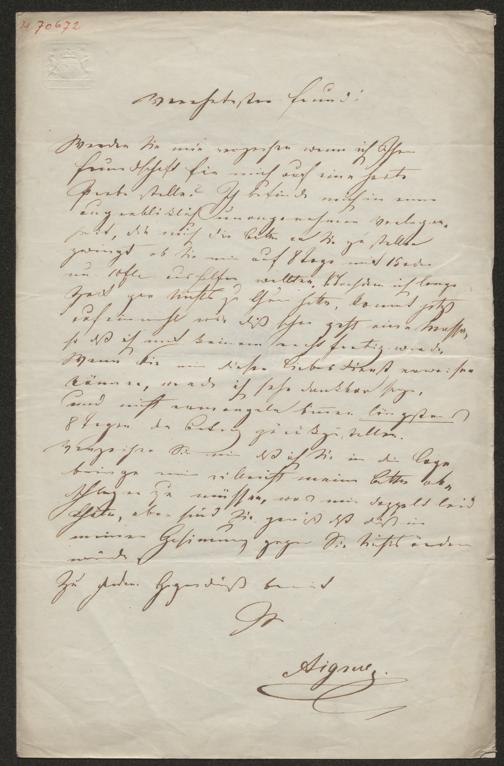 H. 70672
Verehrtester Freund!
Werden Sie mir verzeihen wenn ich Ihre
Freundschaft für mich auf eine harte
Probe stelle? Ich befinde mich in einer
augenblicklich unangenehmen Verlegen-
heit, die mich die Bitte an Sie zu stellen
zwingt ob Sie mir auf 8 Tage mit 15 oder
10 fl. aushelfen wollten. Nachdem ich lange
Zeit gar nichts zu thun hatte, kommt jetzt
auf einmahl wie dieß schon geht eine Masse,
so daß ich mit keinem recht fertig werde.
Wenn Sie mir diesen Liebesdienst erweisen
können, werde ich sehr dankbar sein,
und nicht ermangeln Ihnen längstens
8 Tagen den Betrag zurückzustellen.
Verzeihen Sie mir daß ich Sie in die Lage
bringe mir vielleicht meine Bitte ab-
schlagen zu müssen, was mir doppelt leid
thäte, aber sind Sie gewiß daß dieß in
meiner Gesinnung gegen Sie nichts ändern
würde.
Zu jedem Gegendienst bereit
Ihr
Aigner